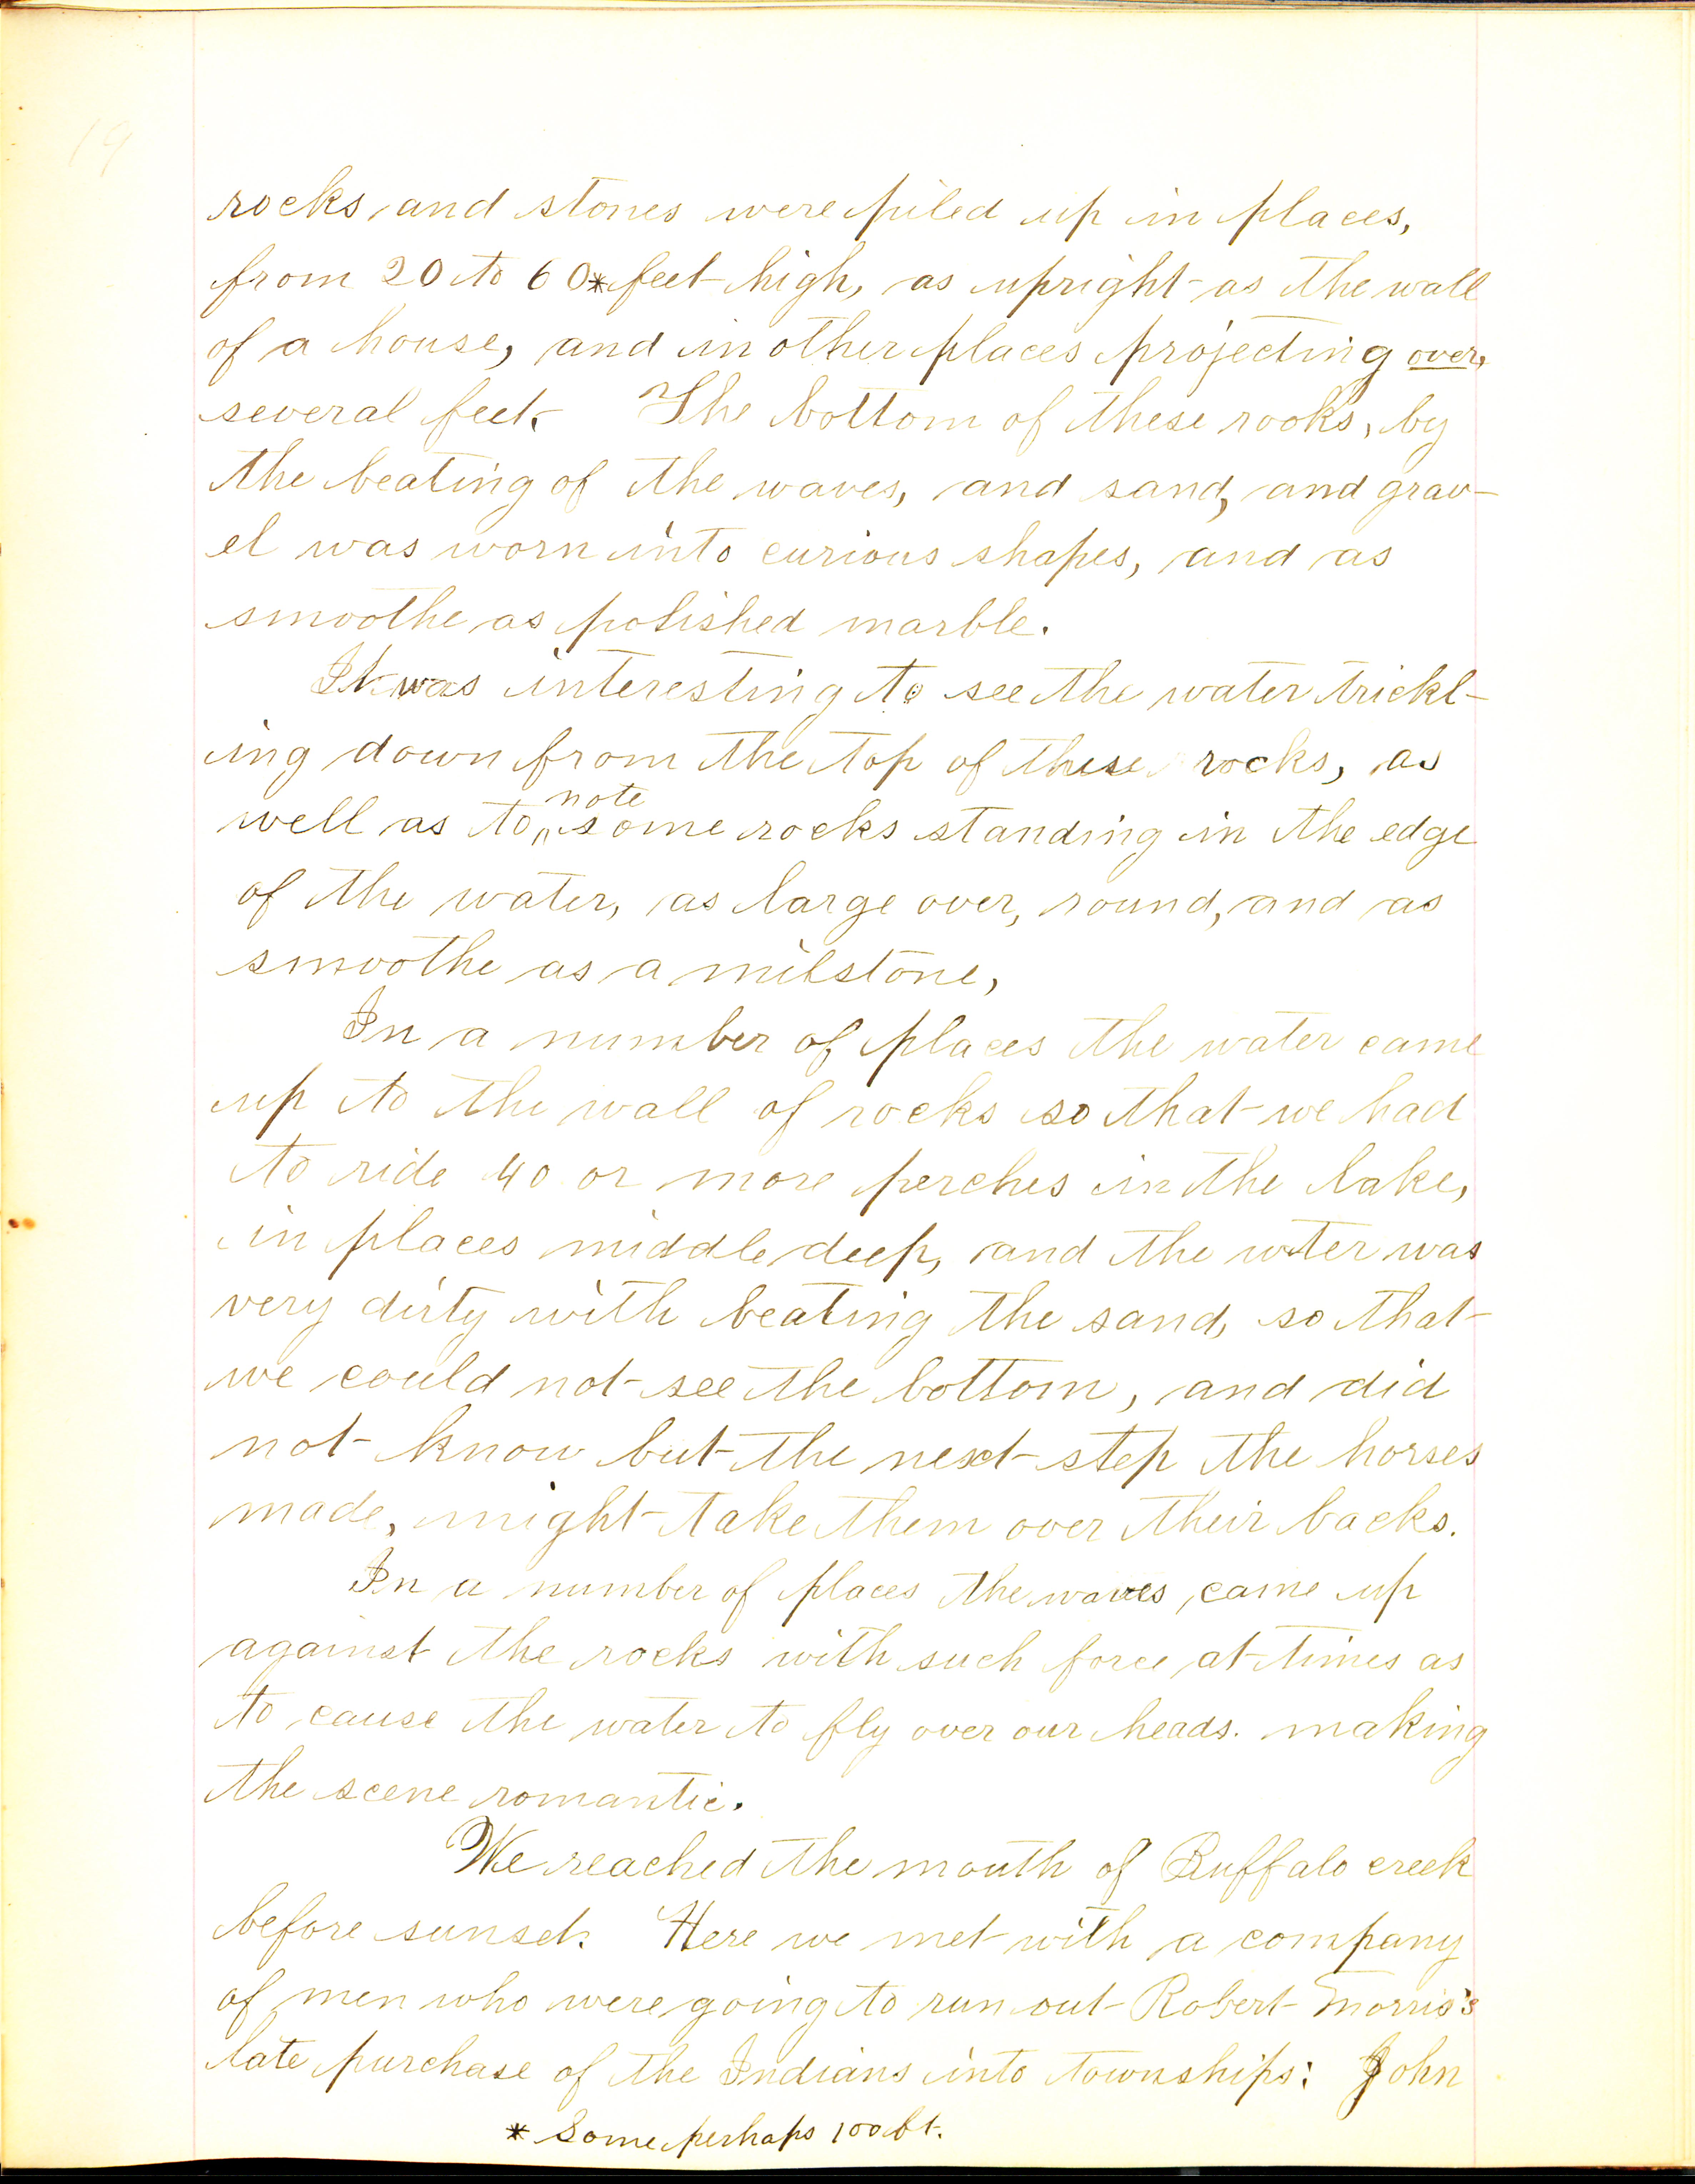 19
rocks and stones were piled up in places,
from 20 to 60* feet high, as upright as the wall
of a house, and in other places projecting over,
several feet. The bottom of these rooks, by
the beating of the waves, and sand, and grav-
el was worn into curious shapes, and as
smoothe as polished marble.
It was interesting to see the water trickl-
ing down from the top of these rocks, as
note
well as to,, some rocks standing in the edge
of the water, as large over, round, and as
smoothe as a milstone,
In a number of places the water came
up to the wall of rocks so that we had
to ride 40 or more perches in the lake,
in places middle deep, and the wter was
very dirty with beating the sand, so that
we could not see the bottom, and did
not know but the next step the horses
made, might take them over their backs.
In a number of places the waves, came up
against the rocks with such force at times as
to cause the water to fly over our heads. making
the scene romantic.
We reached the mouth of Buffalo creek
before sunset. Here we met with a company
of men who were going to run out Robert Morris's
late purchase of the Indians into townships: John
* Some perhaps 100 ft.